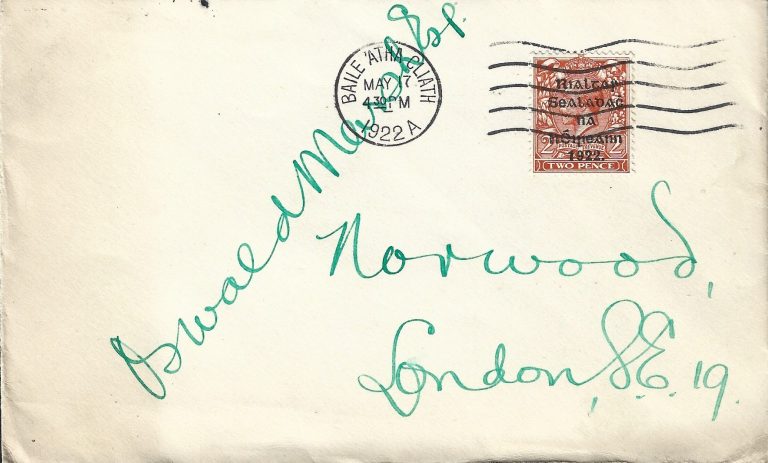 BAILE ATHA CLIATH
MAY 17
4 30 PM
1922 A
Rialtas
Sealadaċ
na
hÉireann
1922
2 2
TWO PENCE
Oswald Marsh Esq.
Norwood,
London, S.E. 19.